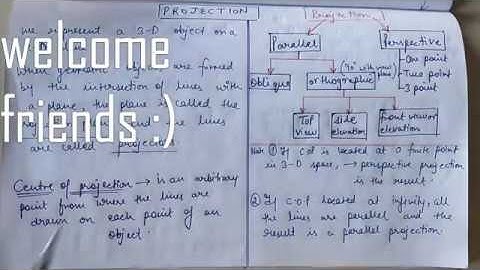 PROJECTION
we represent a 3-D object on a
welcome
when geometric objects are formed
by the intersection of lines with
a plane, the plane is called the
friends :)
are lines
are called projectors.
Centre of projection → is an arbitrary
point from where the lines are
drawn on each point of an
object.
Projection
Parallel
Perspective
one point
Two point
3 point
Oblique
orthographic
Top view
side elevation
front view or elevation
Note ① If cop is located at a finite point
in 3-D space, → perspective projection
is the result.
② If C.O.P located at infinity, all
the lines are parallel and the
result is a parallel projection.